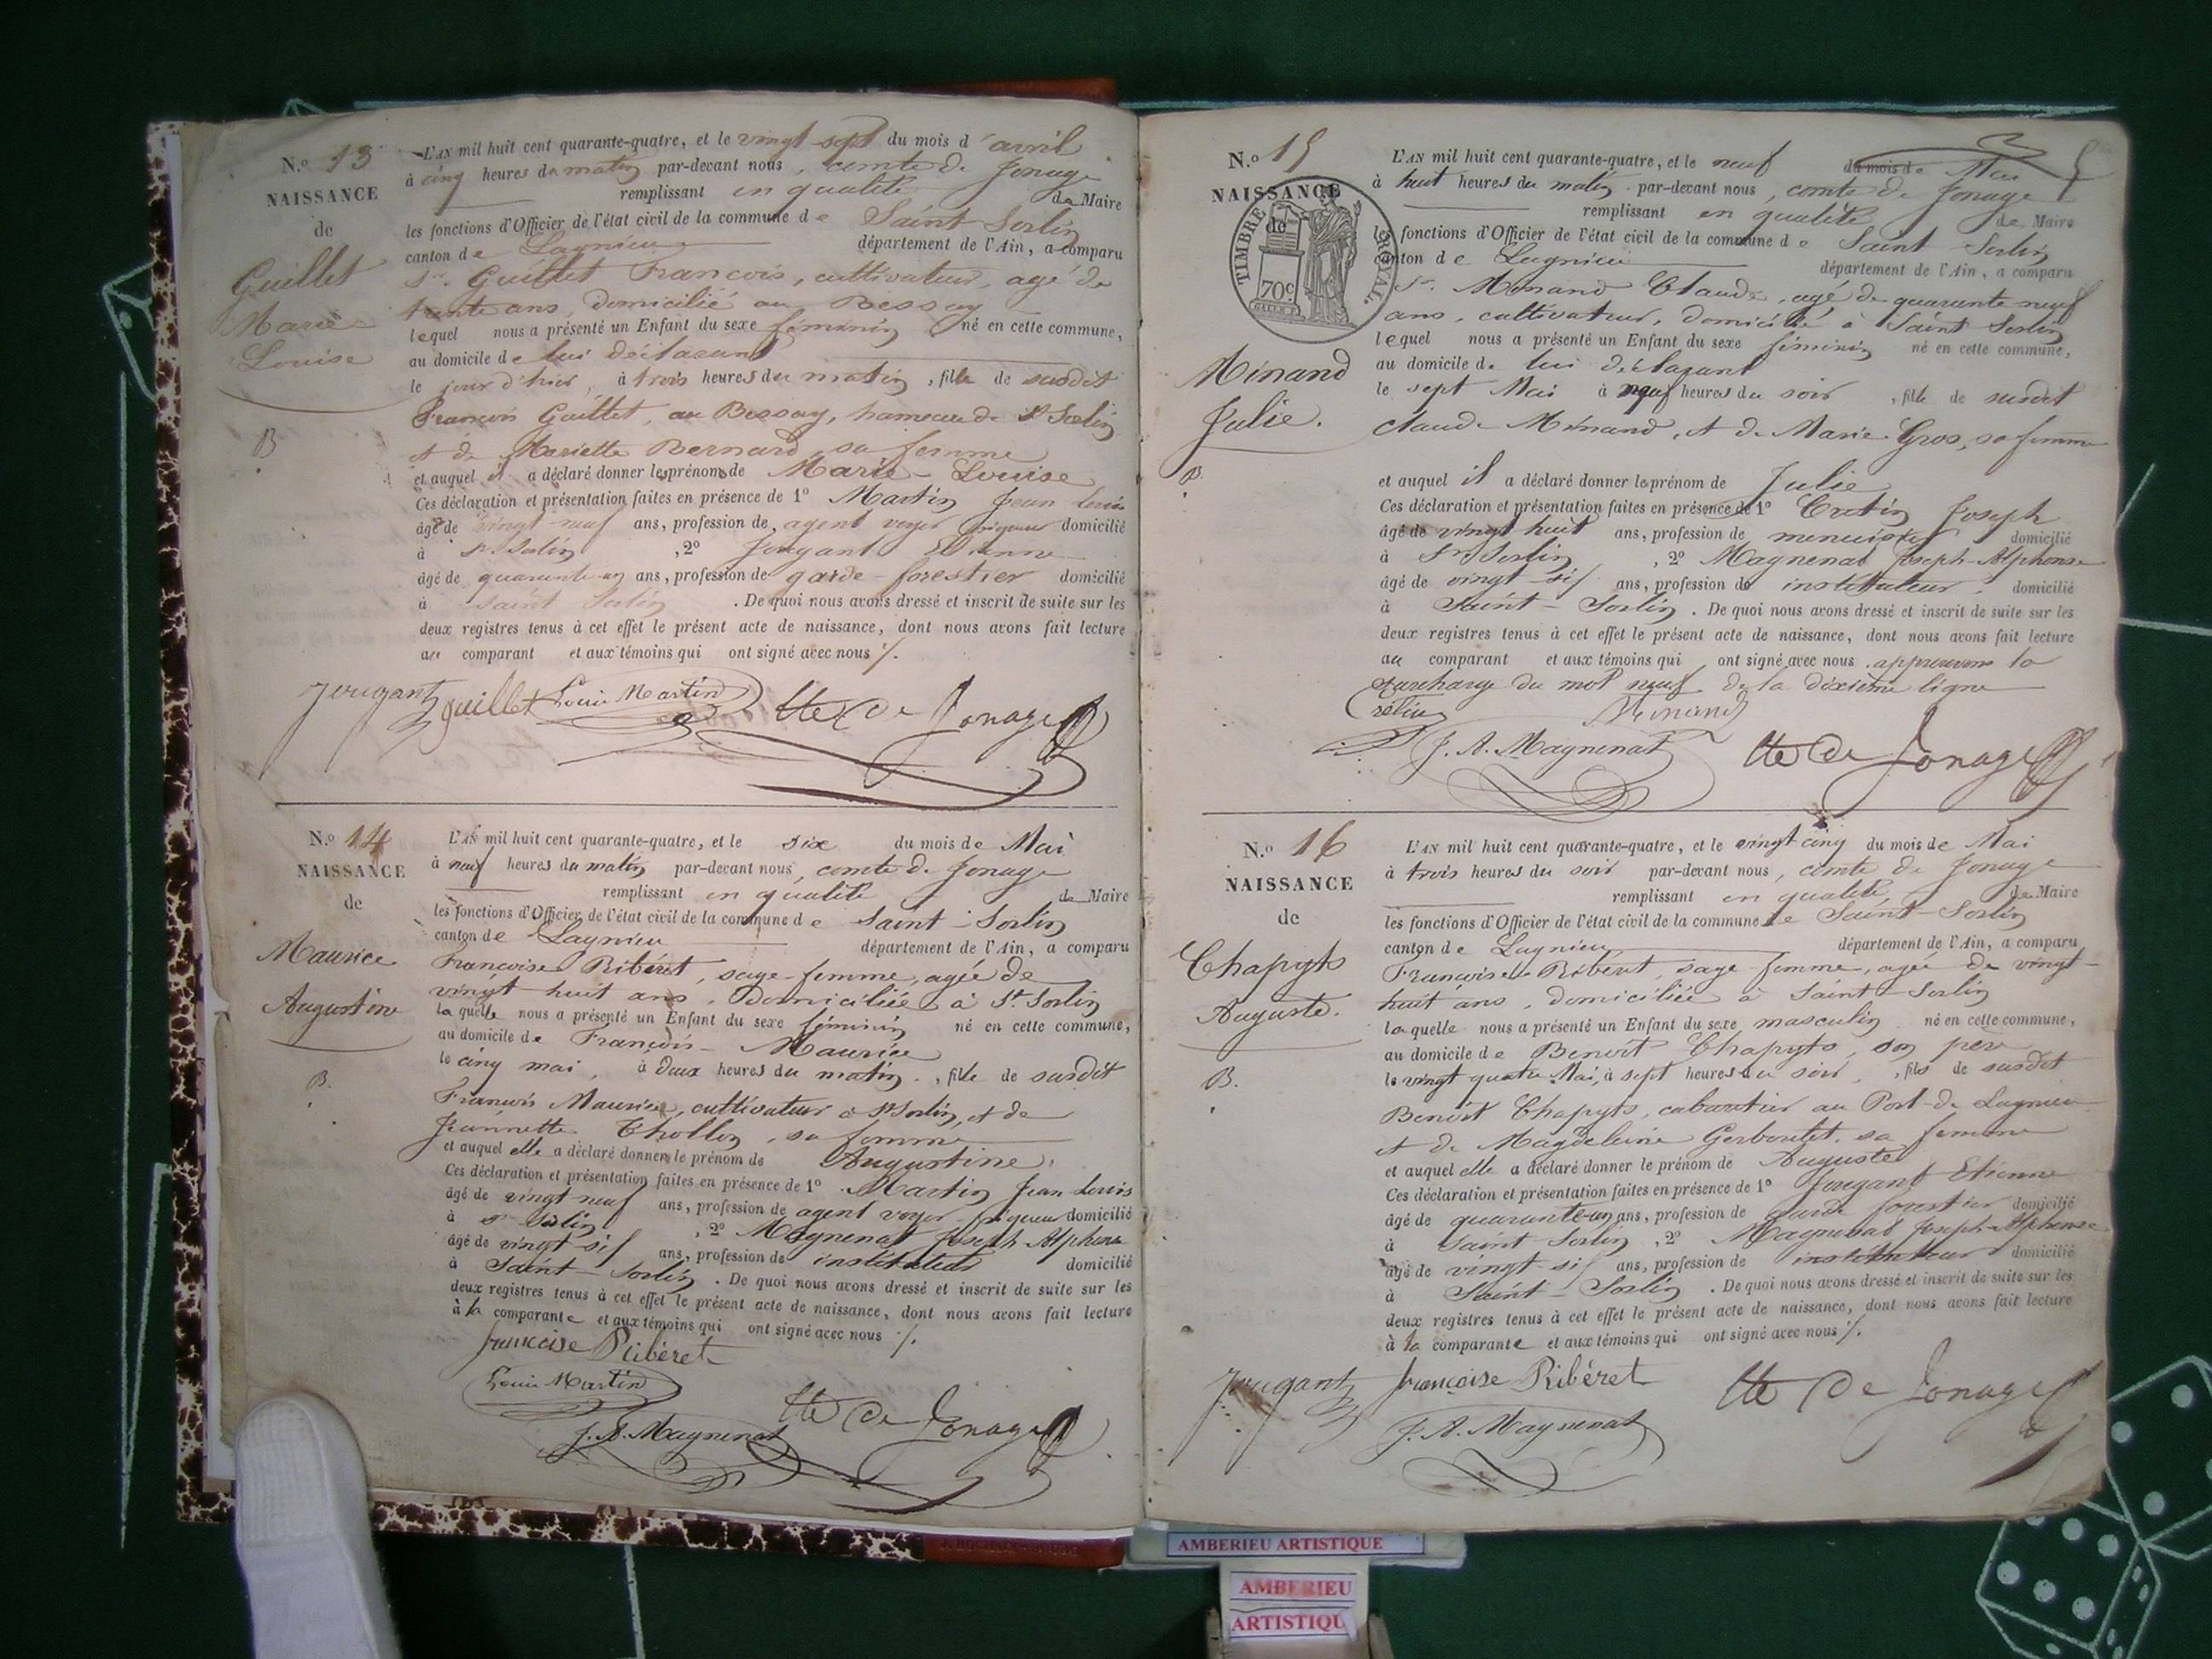 N.º 13
NAISSANCE
de
Guillet
Marie
Louise
B
L'AN mil huit cent quarante-quatre, et le vingt sept du mois d'avril
à cinq heures du matin par-devant nous, comte de Jonage
remplissant en qualité de Maire
les fonctions d'Officier de l'état civil de la commune de Saint Sorlin
canton de Lagnieu département de l'Ain, a comparu
Sr. Guillet Francois, cultivateur, agé de
trente ans, domicilié au Bessay
lequel nous a présenté un Enfant du sexe féminin né en cette commune,
au domicile de lui déclarant
le jour d'hier, à trois heures du matin, fille de susdit
François Guillet, au Bessay, hameau de St Sorlin
et de Mariette Bernard, sa femme
et auquel il a déclaré donner les prénoms de Marie-Louise
Ces déclaration et présentation faites en présence de 1º Martin Jean Louis
âgé de vingt-neuf ans, profession de agent voyer piqueur domicilié
à St Sorlin, 2º Jougant Etienne
âgé de quarante-un ans, profession de garde-forestier domicilié
à Saint Sorlin. De quoi nous avons dressé et inscrit de suite sur les
deux registres tenus à cet effet le présent acte de naissance, dont nous avons fait lecture
au comparant et aux témoins qui ont signé avec nous /.
Jougant guillet Louis Martin Cte De Jonage
N.º 14
NAISSANCE
de
Maurice
Augustine
B.
L'AN mil huit cent quarante-quatre, et le six du mois de Mai
à neuf heures du matin par-devant nous, comte de Jonage
remplissant en qualité de Maire
les fonctions d'Officier de l'état civil de la commune de Saint-Sorlin
canton de Lagnieu département de l'Ain, a comparu
Françoise Ribéret, sage-femme, agée de
vingt huit ans, domiciliée à St. Sorlin
laquelle nous a présenté un Enfant du sexe féminin né en cette commune,
au domicile de François-Maurice
le cinq mai, à deux heures du matin, fille de susdit
Francois Maurice, cultivateur à St Sorlin, et de
Jeannette Thollon, sa femme
et auquel elle a déclaré donner le prénom de Augustine.
Ces déclaration et présentation faites en présence de 1º Martin Jean Louis
âgé de vingt-neuf ans, profession de agent voyer piqueur domicilié
à St Sorlin, 2º Magnenat Joseph Alphonse
âgé de vingt-six ans, profession de instituteur domicilié
à Saint-Sorlin. De quoi nous avons dressé et inscrit de suite sur les
deux registres tenus à cet effet le présent acte de naissance, dont nous avons fait lecture
à la comparante et aux témoins qui ont signé avec nous /.
françoise Ribéret
Louis Martin
J. A. Magnenat Cte De Jonage
N.º 15
NAISSANCE
de
TIMBRE ROYAL.
70c
Minand
Julie.
B.
L'AN mil huit cent quarante-quatre, et le neuf du mois de Mai
à huit heures du matin par-devant nous, comte de Jonage
remplissant en qualité de Maire
les fonctions d'Officier de l'état civil de la commune de Saint-Sorlin
canton de Lagnieu département de l'Ain, a comparu
Sr. Minand Claude, agé de quarante neuf
ans, cultivateur, domicilié à Saint Sorlin
lequel nous a présenté un Enfant du sexe féminin né en cette commune,
au domicile de lui déclarant
le sept Mai à neuf heures du soir, fille de susdit
Claude Minand, et de Marie Gros, sa femme
et auquel il a déclaré donner le prénom de Julie
Ces déclaration et présentation faites en présence de 1º Cretin Joseph
âgé de vingt huit ans, profession de menuisier domicilié
à St Sorlin, 2º Magnenat Joseph-Alphonse
âgé de vingt-six ans, profession de instituteur, domicilié
à Saint-Sorlin. De quoi nous avons dressé et inscrit de suite sur les
deux registres tenus à cet effet le présent acte de naissance, dont nous avons fait lecture
au comparant et aux témoins qui ont signé avec nous approuvons la
surcharge du mot neuf de la dixième ligne
Minand
J. A. Magnenat Cte De Jonage
N.º 16
NAISSANCE
de
Chapyts
Auguste.
B.
L'AN mil huit cent quarante-quatre, et le vingt cinq du mois de Mai
à trois heures du soir par-devant nous, comte de Jonage
remplissant en qualité de Maire
les fonctions d'Officier de l'état civil de la commune de Saint-Sorlin
canton de Lagnieu département de l'Ain, a comparu
Françoise Ribéret, sage femme, agée de vingt-
huit ans, domiciliée à Saint-Sorlin
laquelle nous a présenté un Enfant du sexe masculin né en cette commune,
au domicile de Benoit Chapyts, son père
le vingt quatre Mai, à sept heures du soir, fils de susdit
Benoît Chapyts, cabaretier au Port-de Lagnieu
et de Magdeleine Gerboulet, sa femme
et auquel elle a déclaré donner le prénom de Auguste
Ces déclaration et présentation faites en présence de 1º Jougant Etienne
âgé de quarante-un ans, profession de garde forestier domicilié
à Saint Sorlin, 2º Magnenat Joseph-Alphonse
âgé de vingt-six ans, profession de instituteur domicilié
à Saint-Sorlin. De quoi nous avons dressé et inscrit de suite sur les
deux registres tenus à cet effet le présent acte de naissance, dont nous avons fait lecture
à la comparante et aux témoins qui ont signé avec nous /.
Jougant françoise Ribéret Cte De Jonage
J. A. Magnenat
AMBERIEU ARTISTIQUE
AMBERIEU
ARTISTIQU